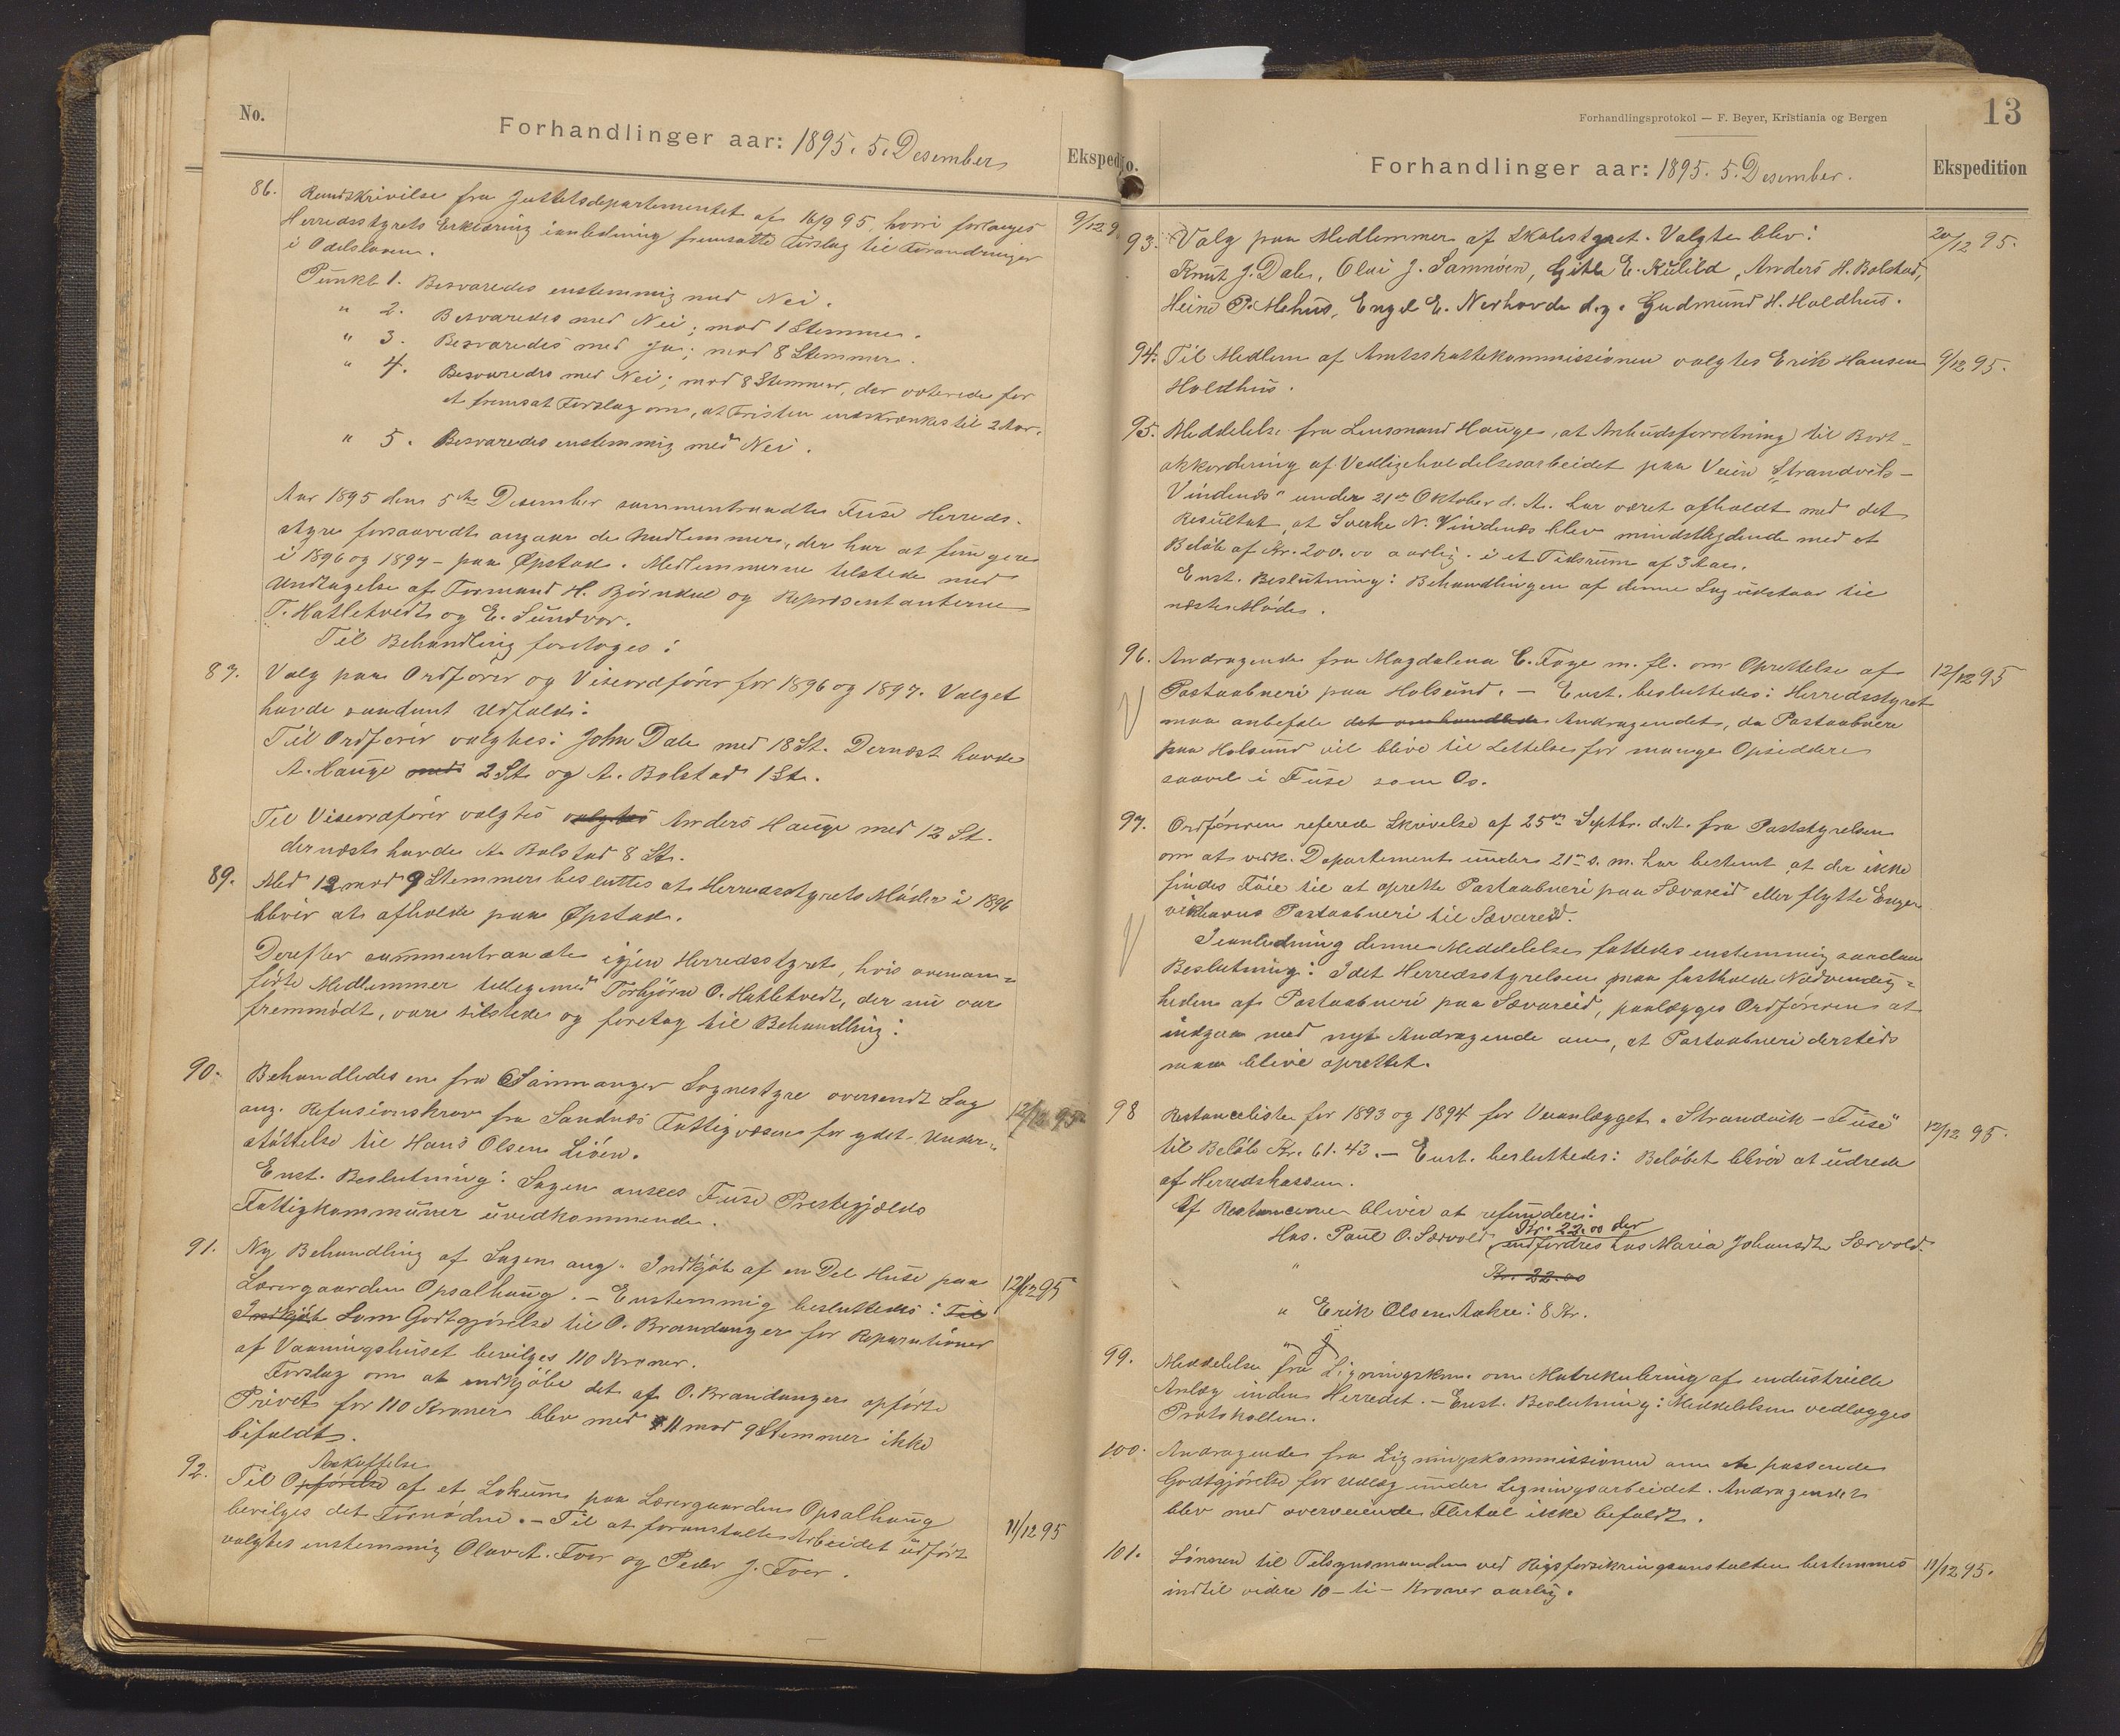 No.
Forhandlinger aar: 1895. 5. Desember
Eksped
86. Rundskrivelse fra Justitsdepartementet af 16/9 95, hvori forlanges 9/12 9
Herredsstyrets Erklæring ianledning fremsatte Forslag til Forandringer
i Odelsloven.
Punkt 1. Besvaredes enstemmig med Nei.
" 2. Besvaredes med Nei; mod 1 Stemme.
" 3. Besvaredes med Ja; mod 8 Stemmer.
" 4. Besvaredes med Nei; mod 8 Stemmer, der voterede for
et fremsat Forslag om, at Fristen indskrænkes til 2 Aar.
" 5. Besvaredes enstemmig med Nei.
Aar 1895 den 5te Desember sammentraadte Fuse Herreds-
styre forsaavidt angaar de Medlemmer, der har at fungere
i 1896 og 1897 - paa Øpstad. Medlemmerne tilstede med
Undtagelse af Formand H. Björndal og Repræsentanterne
T. Hatletvedt og E. Sundvor.
Til Behandling foretoges:
87. Valg paa Ordförer og Viseordförer for 1896 og 1897. Valget
havde saadant Udfald:
Til Ordförer valgtes: John Dale med 18 St. Dernæst havde
A. Hauge med 2 St. og A. Bolstad 1 St.
Til Viseordförer valgtes valgtes Anders Hauge med 12 St.
dernæst havde A. Bolstad 8 St.
89. Med 12 mod 9 Stemmer besluttes at Herredsstyrets Möder i 1896
bliver at afholde paa Øpstad.
Derefter sammentraadte igjen Herredsstyret, hvis ovenan-
förte Medlemmer tilligemed Torbjörn O. Hatletvedt, der nu var
fremmödt, vare tilstede og foretog til Behandling:
90. Behandledes en fra Samnanger Sognestyre oversendt Sag 12/12 95
ang. Refusionskrav fra Sandnæs Fattigvæsen for ydet Under-
støttelse til Hans Olsen Liöen.
Enst. Beslutning: Sagen ansees Fuse Prestegjælds
Fattigkommuner uvedkommende.
91. Ny Behandling af Sagen ang. Indkjöb af en Del Huse paa 12/12 95
Lærergaarden Opsalhaug. - Enstemmig besluttedes: Til
Indkjöb Som Godtgjörelse til O. Brandanger for Reparationer
af Vaaningshuset bevilges 110 Kroner.
Forslag om at indkjöbe det af O. Brandanger opförte
Privet for 110 Kroner blev med 11 mod 9 Stemmer ikke
bifaldt.
Anskaffelse
92. Til Opförelse af et Lokum paa Lærergaarden Opsalhaug
bevilges det Fornödne. - Til at foranstalte Arbeidet udfört 11/12 95
valgtes enstemmig Olav A. Tvor og Peder J. Tvor.
Forhandlingsprotokol — F. Beyer, Kristiania og Bergen
13
o.
Forhandlinger aar: 1895. 5. Desember.
Ekspedition
93. Valg paa Medlemmer af Skolestyret. Valgte blev: 20/12 95.
Knut J. Dale, Olai J. Samnöen, Gitle E. Kulild, Anders H. Bolstad,
Heine P. Mehus, Engel E. Nerhovde d.y. Gudmund H. Holdhus.
94. Til Medlem af Amtsskattekommissionen valgtes Erik Hansen 9/12 95.
Holdhus.
95. Meddelelse fra Lensmand Hauge, at Anbudsforretning til Bort-
akkordering af Vedligeholdelsesarbeidet paa Veien "Strandvik-
Vindenes" under 21de Oktober d. A. har været afholdt med det
Resultat, at Sverke N. Vindenes blev mindstbydende med et
Beløb af Kr. 200.00 aarlig i et Tidsrum af 3 Aar.
Enst. Beslutning: Behandlingen af denne Sag udstaar til
næste Möde.
96. Andragende fra Magdalena E. Toge m. fl. om Oprettelse af 12/12 95
Postaabneri paa Holsund. - Enst. besluttedes: Herredsstyret
maa anbefale det omhandlede Andragendet, da Postaabneri
paa Holsund vil blive til Lettelse for mange Opsiddere
saavel i Fuse som Os.
97. Ordföreren referede Skrivelse af 25de Septbr. d. A. fra Poststyrelsen
om at vedk. Departement under 21de s. m. har bestemt, at der ikke
findes Föie til at oprette Postaabneri paa Sævareid eller flytte Enge-
vikhavns Postaabneri til Sævareid.
Ianledning denne Meddelelse fattedes enstemmig saadan
Beslutning: Idet Herredsstyrelsen maa fastholde Nødvendig-
heden af Postaabneri paa Sævareid, paalægges Ordföreren at
indgaa med nyt Andragende om, at Postaabneri dersteds
maa blive oprettet.
98 Restanceliste for 1893 og 1894 for Veianlægget "Strandvik - Fuse" 12/12 95.
til Beløb Kr. 61.43. - Enst. besluttedes: Beløbet bliver at udrede
af Herredskassen.
Af Restancerne bliver at refundere:
Kr. 22.00 der
Hos. Paul O. Særvold indfordres hos Maria Johansdtr Særvold.
" Kr. 22.00
" Erik Olsen Aakre: 8 Kr.
99. Meddelelse fra Ligningskom. om Matrikulering af industrielle
Anlæg inden Herredet. - Enst. Beslutning: Meddelelsen vedlægges
Protokollen.
100. Andragende fra Ligningskommissionen om en passende
Godtgjörelse for Udlæg under Ligningsarbeidet. Andragendet
blev med overveiende Flertal ikke bifaldt.
101. Lönnen til Tilsynsmanden ved Rigsforsikringsanstalten bestemmes 11/12 95.
indtil videre 10 - ti - Kroner aarlig.